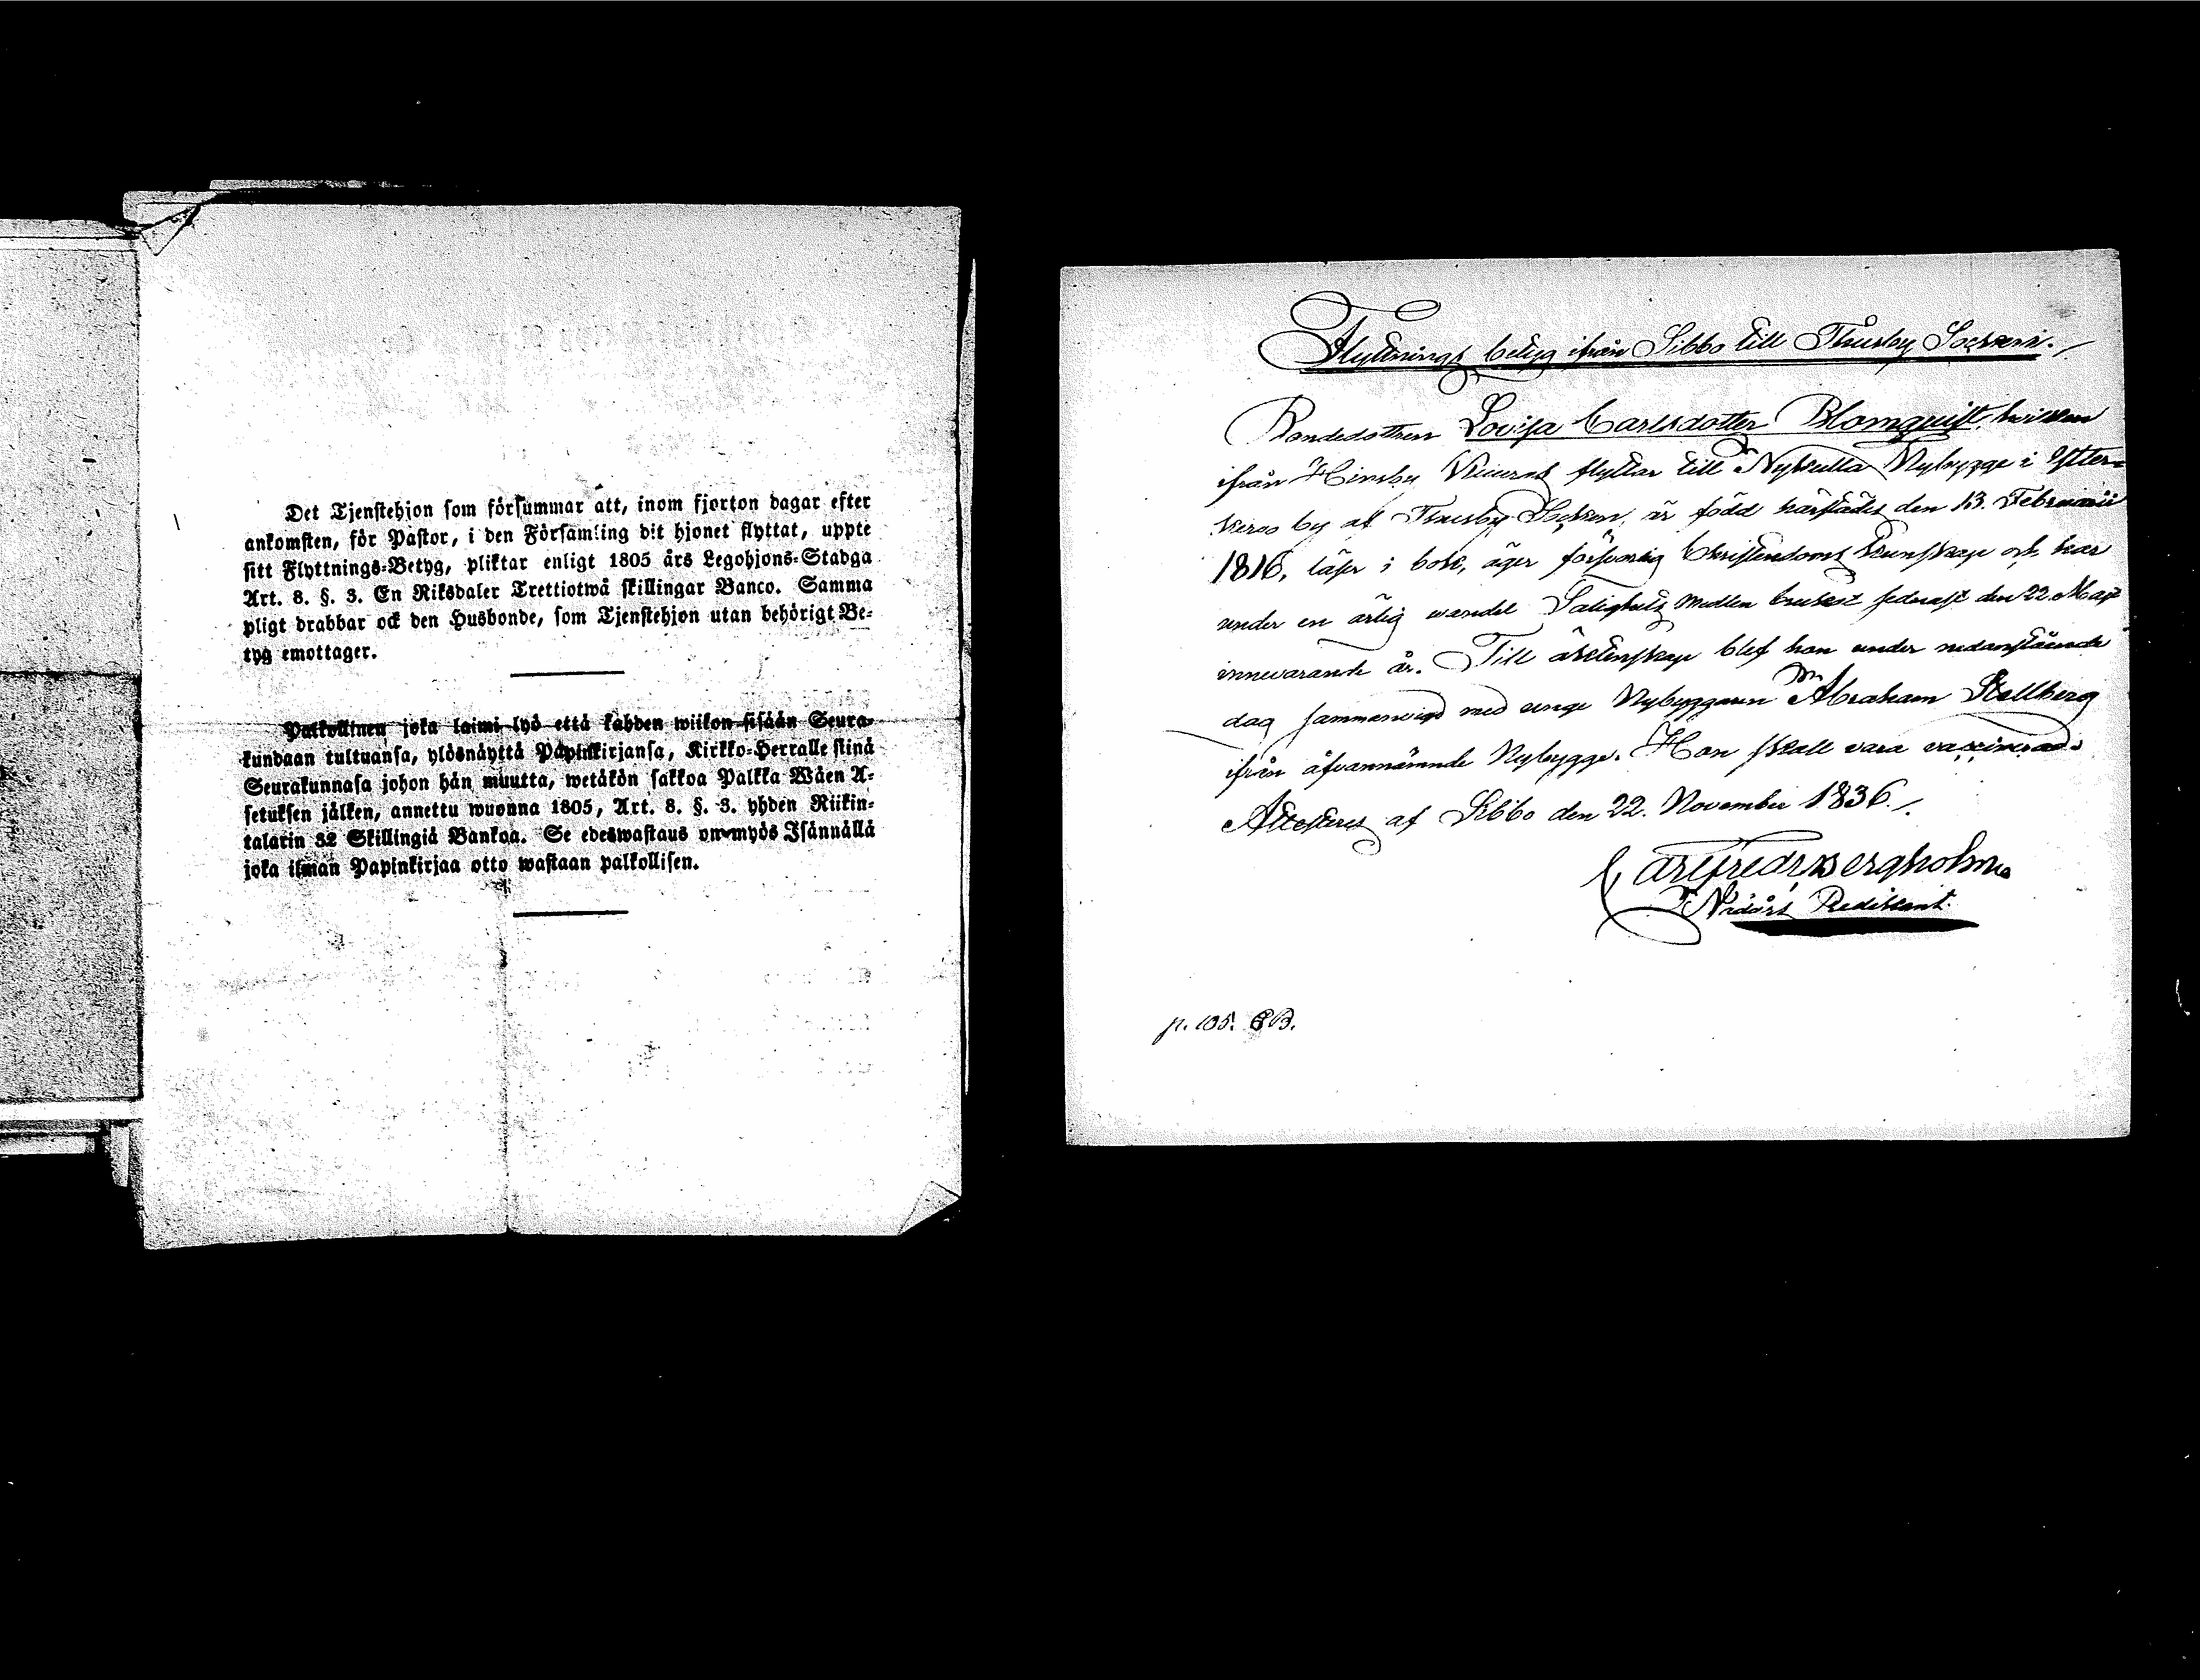 Det Tjenstehjon som försummar att, inom fjorton dagar efter
ankomsten, för Pastor, i den Församling dit hjonet flyttat, uppte
sitt Flyttnings-Betyg, pliktar enligt 1805 års Legohjons-Stadga
Art. 8. §. 3. En Riksdaler Trettiotwå skillingar Banco. Samma
pligt drabbar ock den Husbonde, som Tjenstehjon utan behörigt Be-
tyg emottager.
Palkollinen joka laimi-lyö että kahden wiikon sisään Seura-
kundaan tultuansa, ylösnäyttä Päpinkirjansa, Kirkko-Herralle siinä
Seurakunnasa johon hän muutta, wetäkön sakkoa Palkka Wäen A-
setuksen jälken, annettu wuonna 1805, Art. 8. §. 3. yhden Riikin-
talarin 32 Skillingiä Bankoa. Se edeswastaus on myös Isännällä
joka ilman Papinkirjaa otto wastaan palkollisen.
Flyttnings betyg ifrån Sibbo till Thusby Sockern./
Bondedottren Lovisa Carlsdotter Blomquist, hvilken
ifrån Hindsby flyttar till Nykulla Nybygge i Ytter-
keros by af Thusby Socken, är född härstädes den 13. Februarii
1816, läser i bok, äger försvarlig Christendoms kunskap och har
under en ärlig wandel Salighets medlen brukat sednast den 22. Maji
innevarande år. Till äktenskap blef hon under nedanstående
dag sammanvigd med unge Nybyggaren Abraham Stallberg
ifrån åfvannämnde Nybygge. Hon skall vara vaccinerad.
Attesteras af Sibbo den 22. November 1836./.
Carl Fredr Bergholm
V. Predikant.
p. 105. CB.